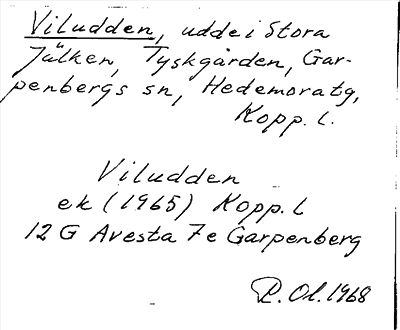 Viludden, udde i Stora
Jälken, Tyskgården, Gar-
penbergs sn, Hedemora tg,
Kopp. l.
Viludden
ek (1965) Kopp. l
12 G Avesta 7e Garpenberg
P. Ol. 1968